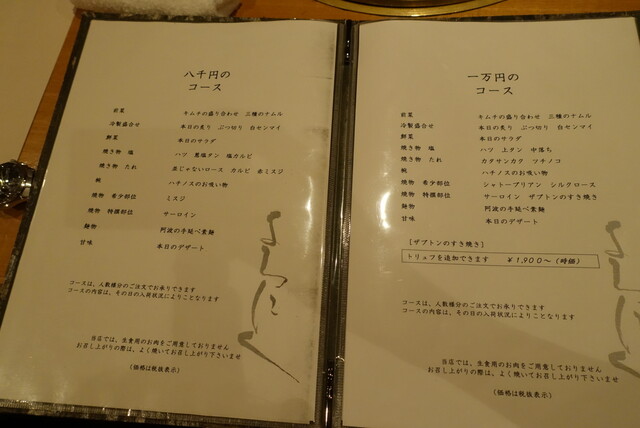 八千円の
コース
前菜 キムチの盛り合わせ 三種のナムル
冷製盛合せ 本日の炙り ぶつ切り 白センマイ
鮮菜 本日のサラダ
焼き物 塩 ハツ 黒塩タン 塩カルビ
焼き物 たれ 血じゃないロース カルビ 赤ミスジ
椀 ハチノスのお吸い物
焼物 希少部位 ミスジ
焼物 特撰部位 サーロイン
麺物 阿波の手延べ素麺
甘味 本日のデザート
コースは、人数様分のご注文でお承りできます
コースの内容は、その日の入荷状況によりことなります
当店では、生食用のお肉をご用意しておりません
お召し上がりの際は、よく焼いてお召し上がり下さいませ
(価格は税抜表示)
一万円の
コース
前菜 キムチの盛り合わせ 三種のナムル
冷製盛合せ 本日の炙り ぶつ切り 白センマイ
鮮菜 本日のサラダ
焼き物 塩 ハツ 上タン 中落ち
焼き物 たれ カタサンカク ツチノコ
椀 ハチノスのお吸い物
焼物 希少部位 シャトーブリアン シルクロース
焼物 特撰部位 サーロイン ザブトンのすき焼き
麺物 阿波の手延べ素麺
甘味 本日のデザート
[ザブトンのすき焼き]
トリュフを追加できます ¥1,900～(時価)
コースは、人数様分のご注文でお承りできます
コースの内容は、その日の入荷状況によりことなります
当店では、生食用のお肉をご用意しておりません
お召し上がりの際は、よく焼いてお召し上がり下さいませ
(価格は税抜表示)